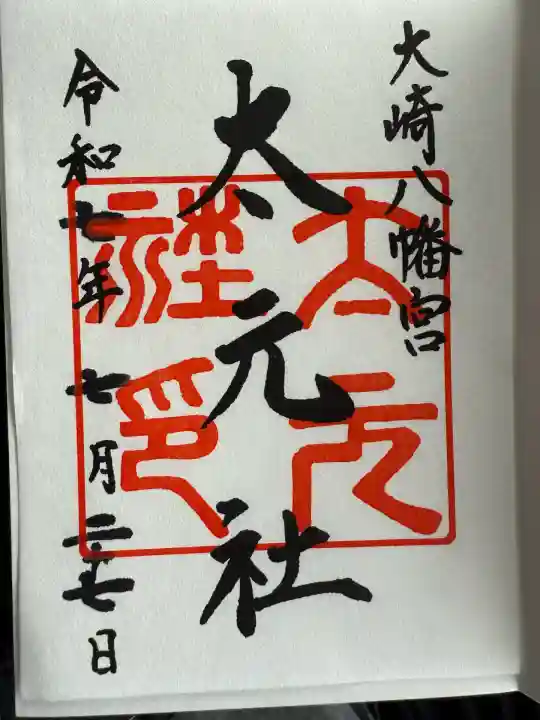 大崎八幡宮
太元社
太元社印
令和七年七月二十七日